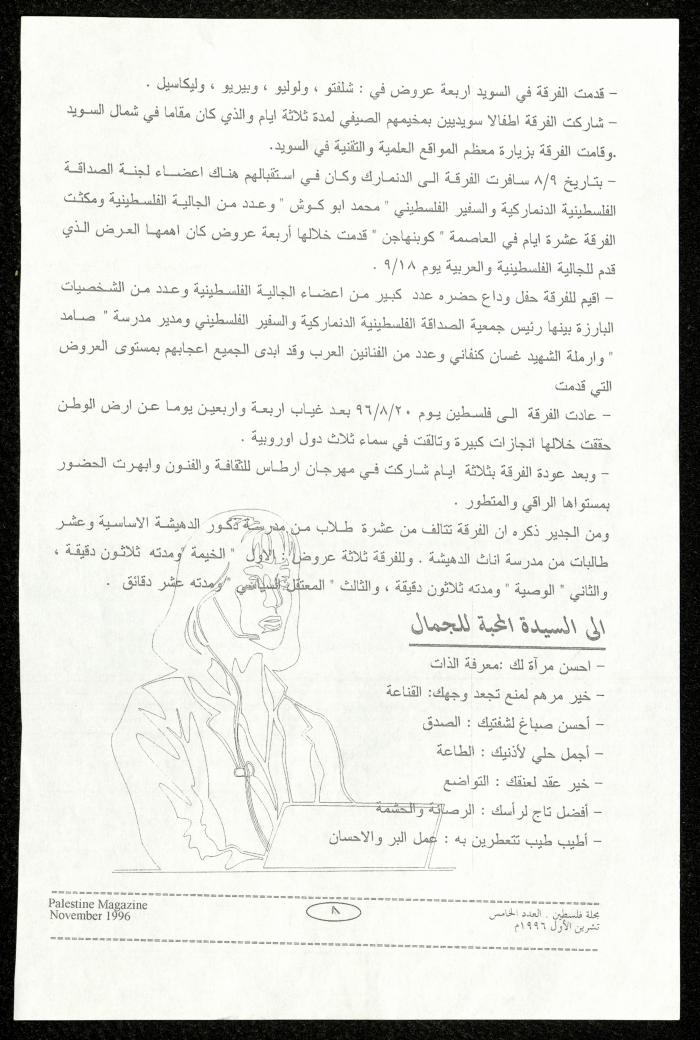 – قدمت الفرقة في السويد اربعة عروض في : شلفتو ، ولوليو ، وبيريو ، وليكاسيل .
– شاركت الفرقة اطفالا سويديين بمخيمهم الصيفي لمدة ثلاثة ايام والذي كان مقاما في شمال السويد
.وقامت الفرقة بزيارة معظم المواقع العلمية والتقنية في السويد.
– بتاريخ ٨/٩ سافرت الفرقة الى الدنمارك وكان في استقبالهم هناك اعضاء لجنة الصداقة
الفلسطينية الدنماركية والسفير الفلسطيني " محمد ابو كوش " وعدد من الجالية الفلسطينية ومكثت
الفرقة عشرة ايام في العاصمة " كوبنهاجن " قدمت خلالها أربعة عروض كان اهمها العرض الذي
قدم للجالية الفلسطينية والعربية يوم ٩/١٨ .
– اقيم للفرقة حفل وداع حضره عدد كبير من اعضاء الجالية الفلسطينية وعدد من الشخصيات
البارزة بينها رئيس جمعية الصداقة الفلسطينية الدنماركية والسفير الفلسطيني ومدير مدرسة " صامد
" وارملة الشهيد غسان كنفاني وعدد من الفنانين العرب وقد ابدى الجميع اعجابهم بمستوى العروض
التي قدمت
– عادت الفرقة الى فلسطين يوم ٩٦/٨/٢٠ بعد غياب اربعة واربعين يوما عن ارض الوطن
حققت خلالها انجازات كبيرة وتالقت في سماء ثلاث دول اوروبية .
– وبعد عودة الفرقة بثلاثة ايام شاركت في مهرجان ارطاس للثقافة والفنون وابهرت الحضور
بمستواها الراقي والمتطور .
ومن الجدير ذكره ان الفرقة تتالف من عشرة طلاب من مدرسة ذكور الدهيشة الاساسية وعشر
طالبات من مدرسة اناث الدهيشة . وللفرقة ثلاثة عروض : الاول " الخيمة "ومدته ثلاثون دقيقة ،
والثاني " الوصية " ومدته ثلاثون دقيقة ، والثالث " المعتقل السياسي " ومدته عشر دقائق .
الى السيدة المحبة للجمال
– احسن مرآة لك :معرفة الذات
– خير مرهم لمنع تجعد وجهك: القناعة
– أحسن صباغ لشفتيك : الصدق
– أجمل حلي لأذنيك : الطاعة
– خير عقد لعنقك : التواضع
– أفضل تاج لرأسك : الرصانة والحشمة
– أطيب طيب تتعطرين به : عمل البر والاحسان
مجلة فلسطين . العدد الخامس
تشرين الأول ١٩٩٦م
٨
Palestine Magazine
November 1996